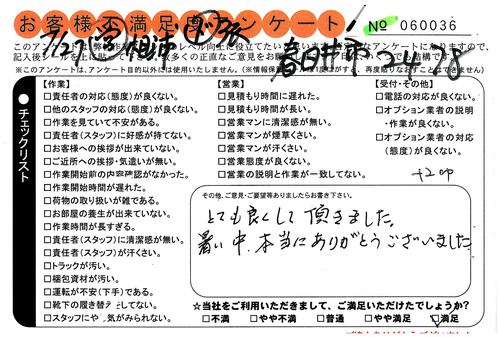 お客様不満足度アンケート
No 060036
【作業】
□責任者の対応(態度)が良くない。
□他のスタッフの対応(態度)が良くない。
□作業を見ていて不安がある。
□責任者(スタッフ)に好感が持てない。
□お客様への挨拶が出来ていない。
□ご近所への挨拶・気遣いが無い。
□作業開始前の内容確認がなかった。
□作業開始時間が遅れた。
□荷物の取り扱いが雑である。
□お部屋の養生が出来ていない。
□作業時間が長すぎる。
□責任者(スタッフ)に清潔感が無い。
□責任者(スタッフ)が汗くさい。
□トラックが汚い。
□梱包資材が汚い。
□運転が不安(下手)である。
□靴下の履き替えをしてない。
□スタッフにや
気がみられない。
【営業】
□見積もり時間に遅れた。
□見積もり時間が長い。
□営業マンに清潔感が無い。
□営業マンが煙草くさい。
□営業マンが汗くさい。
□営業態度が良くない。
□営業の説明と作業が一致してない。
【受付・その他】
□電話の対応が良くない。
□オプション業者の説明
・作業が良くない。
□オプション業者の対応
(態度)が良くない。
●チェックリスト
その他、ご意見・ご要望等ありましたらお書き下さい。
とても良くして頂きました。
暑い中、本当にありがとうございました
☆当社をご利用いただきまして、ご満足いただけたでしょうか?
□不満 □やや不満 □普通 □やや満足 □満足